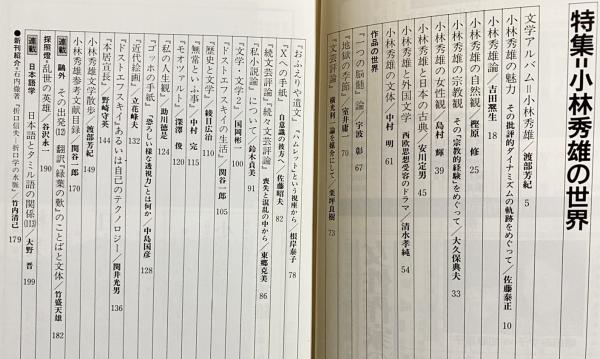 特集=小林秀雄の世界
文学アルバム=小林秀雄/渡部芳紀 5
小林秀雄の魅力 その批評的ダイナミズムの軌跡をめぐって/佐藤泰正 10
小林秀雄論/吉田凞生 18
小林秀雄の自然観/樫原 修 25
小林秀雄の宗教観 その〝宗教的経験〟をめぐって/大久保典夫 33
小林秀雄の女性観/島村 輝 39
小林秀雄と日本の古典/安川定男 45
小林秀雄と外国文学 西欧思想受容のドラマ/清水孝純 54
小林秀雄の文体/中村 明 61
作品の世界
『一つの脳髄』論/宇波 彰 67
『地獄の季節』/室井庸一 70
『文芸評論』横光利一論を媒介にして/栗坪良樹 73
『おふえりや遺文』『ハムレット』という視座から/根岸泰子 78
『Xへの手紙』自意識の彼方へ/佐藤昭夫 82
『続文芸評論』『続々文芸評論』喪失と混乱の中から/東郷克美 86
『私小説論』について/鈴木貞美 91
『文学・文学2』/国岡彬一 100
『ドストエフスキイの生活』/関谷一郎 105
『歴史と文学』/綾目広治 110
『無常といふ事』/中村 完 115
『モオツァルト』/深澤 俊 120
『私の人生観』/助川徳是 124
『ゴッホの手紙』「恐ろしい様な透視力」とは何か/中島国彦 128
『近代絵画』/立花峰夫 132
『ドストエフスキイ』あるいは自己のテクノロジー/関井光男 136
『本居宣長』/野崎守英 144
小林秀雄文学散歩/渡部芳紀 149
小林秀雄参考文献目録/関谷一郎 170
連載 鷗外 その出発(12) 翻訳『緑葉の歎』のことばと文体/竹盛天雄 182
探照燈・乱世の英雄/谷沢永一 190
連載 日本語学 日本語とタミル語の関係(113)/大野 晋 199
●新刊紹介・石内徹著『折口信夫―折口学の水脈』/竹内清己 179